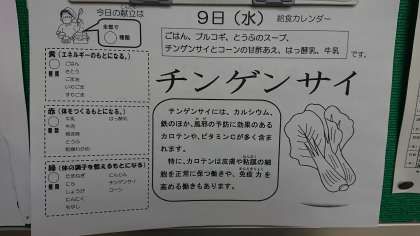 今日の献立は
全部で
種類
9日（水） 給食カレンダー
ごはん、プルコギ、とうふのスープ、
チンゲンサイとコーンの甘酢あえ、はっ酵乳、牛乳
です。
チンゲンサイ
黄（エネルギーのもとになる。）
種類
ごはん
さとう
ごま油
いりごま
すりごま
赤（体をつくるもとになる。）
種類
牛乳 はっ酵乳
牛肉
とうふ
緑（体の調子を整えるもとになる）
種類
たまねぎ にんじん
にら チンゲンサイ
しょうが コーン
にんにく
もやし
チンゲンサイには、カルシウム、
鉄のほか、風邪の予防に効果のある
カロテンや、ビタミンCが多く含ま
れます。
特に、カロテンは皮膚や粘膜の細
胞を正常に保つ働きや、免疫力を
高める働きもあります。